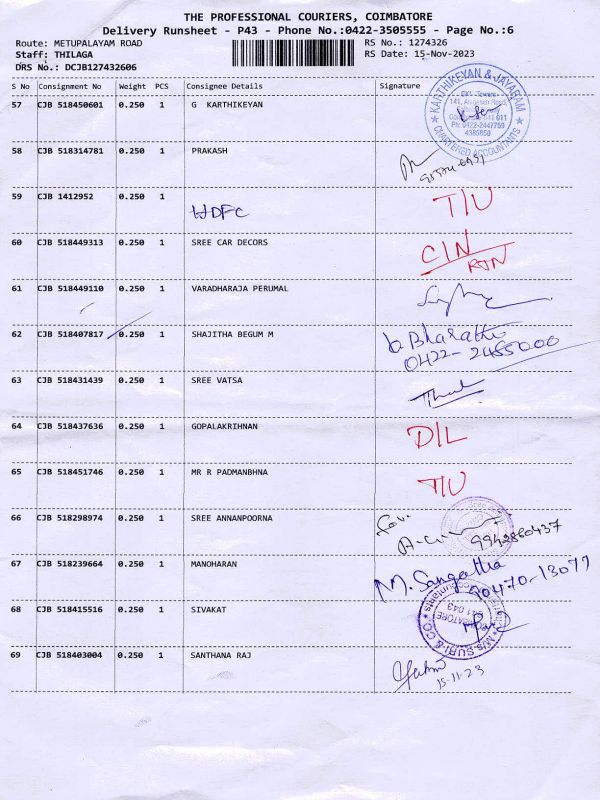 THE PROFESSIONAL COURIERS, COIMBATORE
Delivery Runsheet - P43 - Phone No.:0422-3505555 - Page No.:6
Route: METUPALAYAM ROAD RS No.: 1274326
Staff: THILAGA RS Date: 15-Nov-2023
DRS No.: DCJB127432606
S No Consignment No Weight PCS Consignee Details Signature
57 CJB 518450601 0.250 1 G KARTHIKEYAN
KARTHIKEYAN & JAYARAM
CHARTERED ACCOUNTANTS
58 CJB 518314781 0.250 1 PRAKASH
59 CJB 1412952 0.250 1 HDFC T/U
60 CJB 518449313 0.250 1 SREE CAR DECORS C/N
RTN
61 CJB 518449110 0.250 1 VARADHARAJA PERUMAL
62 CJB 518407817 0.250 1 SHAJITHA BEGUM M b Bharathi
0422-2455000
63 CJB 518431439 0.250 1 SREE VATSA
64 CJB 518437636 0.250 1 GOPALAKRIHNAN D/L
65 CJB 518451746 0.250 1 MR R PADMANBHNA T/U
66 CJB 518298974 0.250 1 SREE ANNANPOORNA
9942860437
67 CJB 518239664 0.250 1 MANOHARAN M. Sangeetha
90470-13077
68 CJB 518415516 0.250 1 SIVAKAT
M/s. SURI & CO
641 043
69 CJB 518403004 0.250 1 SANTHANA RAJ
15-11-23